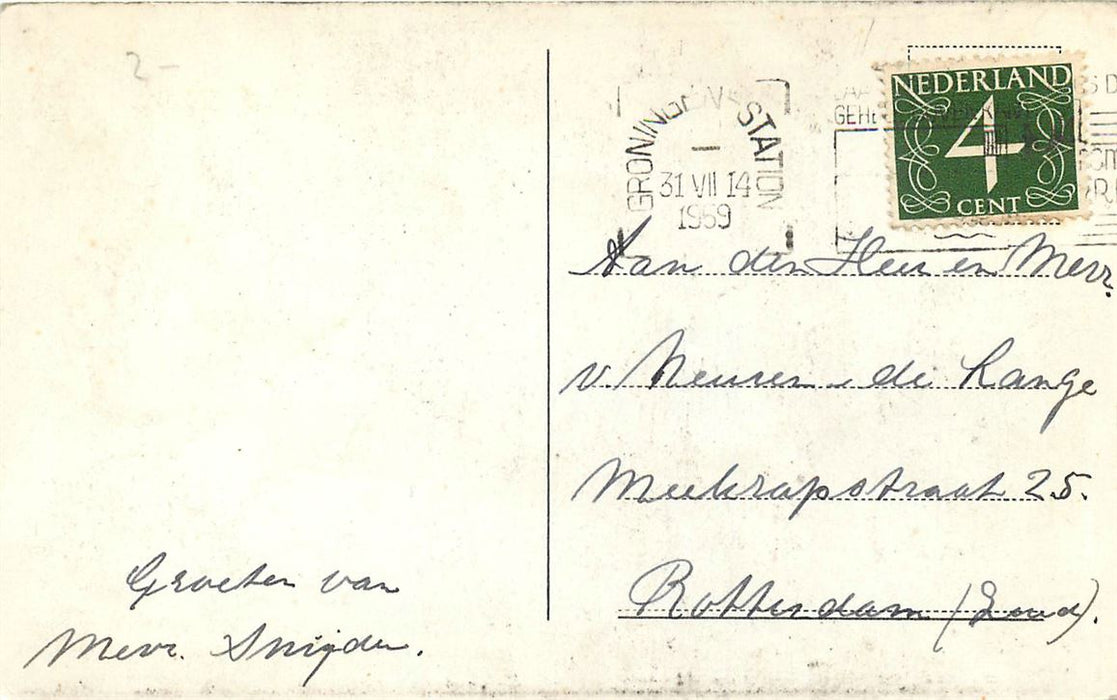 2-
GRONINGEN STATION
31 VII 14
1959
NEDERLAND
4
CENT
Aan den Heer en Mevr.
v. Meursen - de Lange
Meekrapstraat 25.
Rotterdam (Zuid).
Groeten van
Mevr. Snijder.